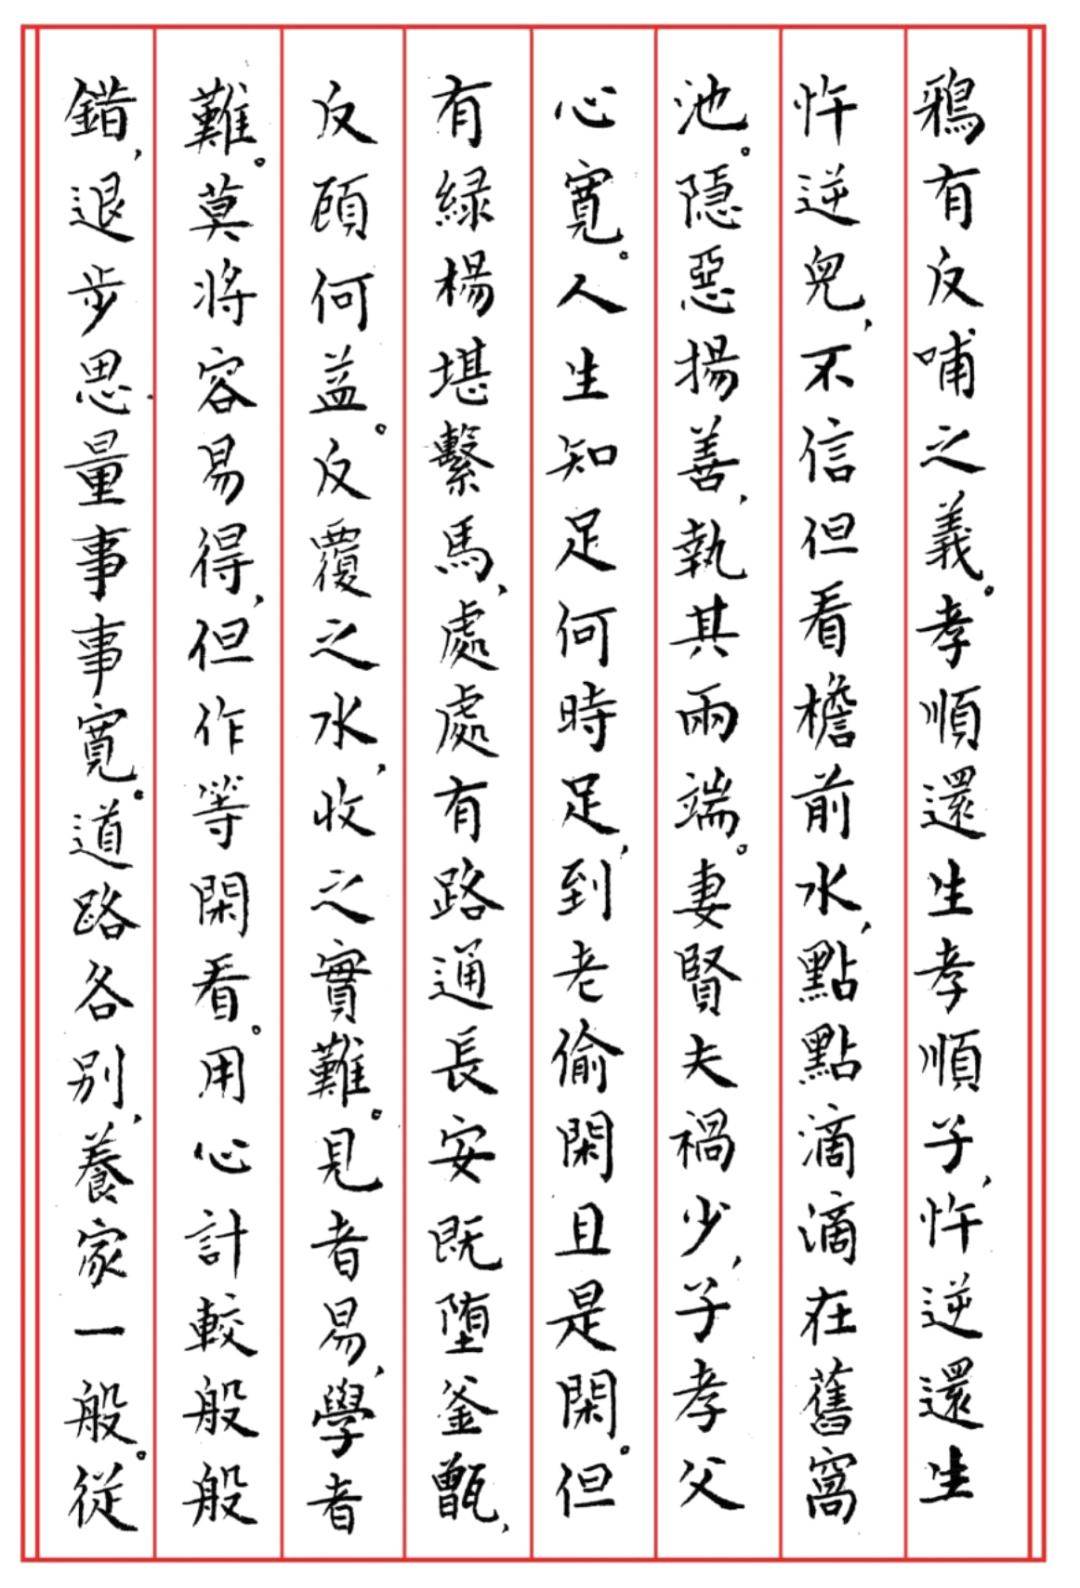 鴉有反哺之義。孝順還生孝順子,忤逆還生
忤逆兒,不信但看檐前水,點點滴滴在舊窩
池。隱惡揚善,執其兩端。妻賢夫禍少,子孝父
心寬。人生知足何時足,到老偷閑且是閑。但
有綠楊堪繫馬,處處有路通長安既墮釜甑,
反顧何益。反覆之水,收之實難。見者易,學者
難。莫將容易得,但作等閑看。用心計較般般
錯,退步思量事事寬。道路各別,養家一般。從